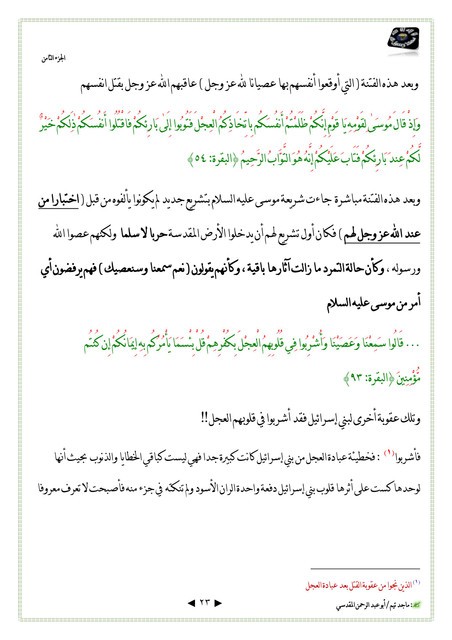 الجزء الثامن
وبعد هذه الفتنة ( التي أوقعوا أنفسهم بها عصيانا لله عز وجل ) عاقبهم الله عز وجل بقتل انفسهم
وَإِذْ قَالَ مُوسَىٰ لِقَوْمِهِ يَا قَوْمِ إِنَّكُمْ ظَلَمْتُمْ أَنفُسَكُم بِاتِّخَاذِكُمُ الْعِجْلَ فَتُوبُوا إِلَىٰ بَارِئِكُمْ فَاقْتُلُوا أَنفُسَكُمْ ذَٰلِكُمْ خَيْرٌ
لَّكُمْ عِندَ بَارِئِكُمْ فَتَابَ عَلَيْكُمْ إِنَّهُ هُوَ التَّوَّابُ الرَّحِيمُ ﴿البقرة: ٥٤﴾
وبعد هذه الفتنة مباشرة جاءت شريعة موسى عليه السلام بتشريع جديد لم يكونوا يألفوه من قبل ( اختبارا من
عند الله عز وجل لهم ) فكان أول تشريع لهم أن يدخلوا الأرض المقدسة حربا لا سلما ولكنهم عصوا الله
ورسوله ، وكأن حالة التمرد ما زالت آثارها باقية ، وكأنهم يقولون ( نعم سمعنا وسنعصيك ) فهم يرفضون أي
أمر من موسى عليه السلام
... قَالُوا سَمِعْنَا وَعَصَيْنَا وَأُشْرِبُوا فِي قُلُوبِهِمُ الْعِجْلَ بِكُفْرِهِمْ قُلْ بِئْسَمَا يَأْمُرُكُم بِهِ إِيمَانُكُمْ إِن كُنتُم
مُّؤْمِنِينَ ﴿البقرة: ٩٣﴾
وتلك عقوبة أخرى لبني إسرائيل فقد أشربوا في قلوبهم العجل !!
فأشربوا (١) : فخطيئة عبادة العجل من بني إسرائيل كانت كبيرة جدا فهي ليست كباقي الخطايا والذنوب بحيث أنها
لوحدها كست على أثرها قلوب بني إسرائيل دفعة واحدة الران الأسود ولم تنكته في جزء منه فأصبحت لا تعرف معروفا
(١) الذين نجوا من عقوبة القتل بعد عبادة العجل
: ماجد تيم / أبو عبد الرحمن المقدسي
٢٣